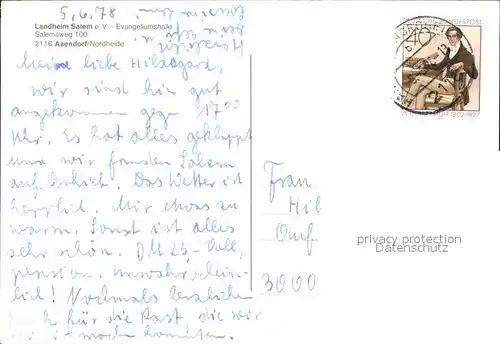 5.6.78
Landheim Salem e.V. - Evangeliumshalle
Salemsweg 100
2116 Asendorf/Nordheide
Meine liebe Hildegard,
wir sind hier gut
angekommen gegen 17.00
Uhr. Es hat alles geklappt
und wir fanden Salem
auf Anhieb. Das Wetter ist
herrlich. Mir etwas zu
warm. Sonst ist alles
sehr schön. DM 25,- Voll-
pension. Unwahrschein-
lich! Nochmals herzlichen
für die Rast, die wir
machen konnten.
DEUTSCHE BUNDESPOST
40
WILHELM HAUFF 1802-1827
Frau
Hil
3000
privacy protection
Datenschutz